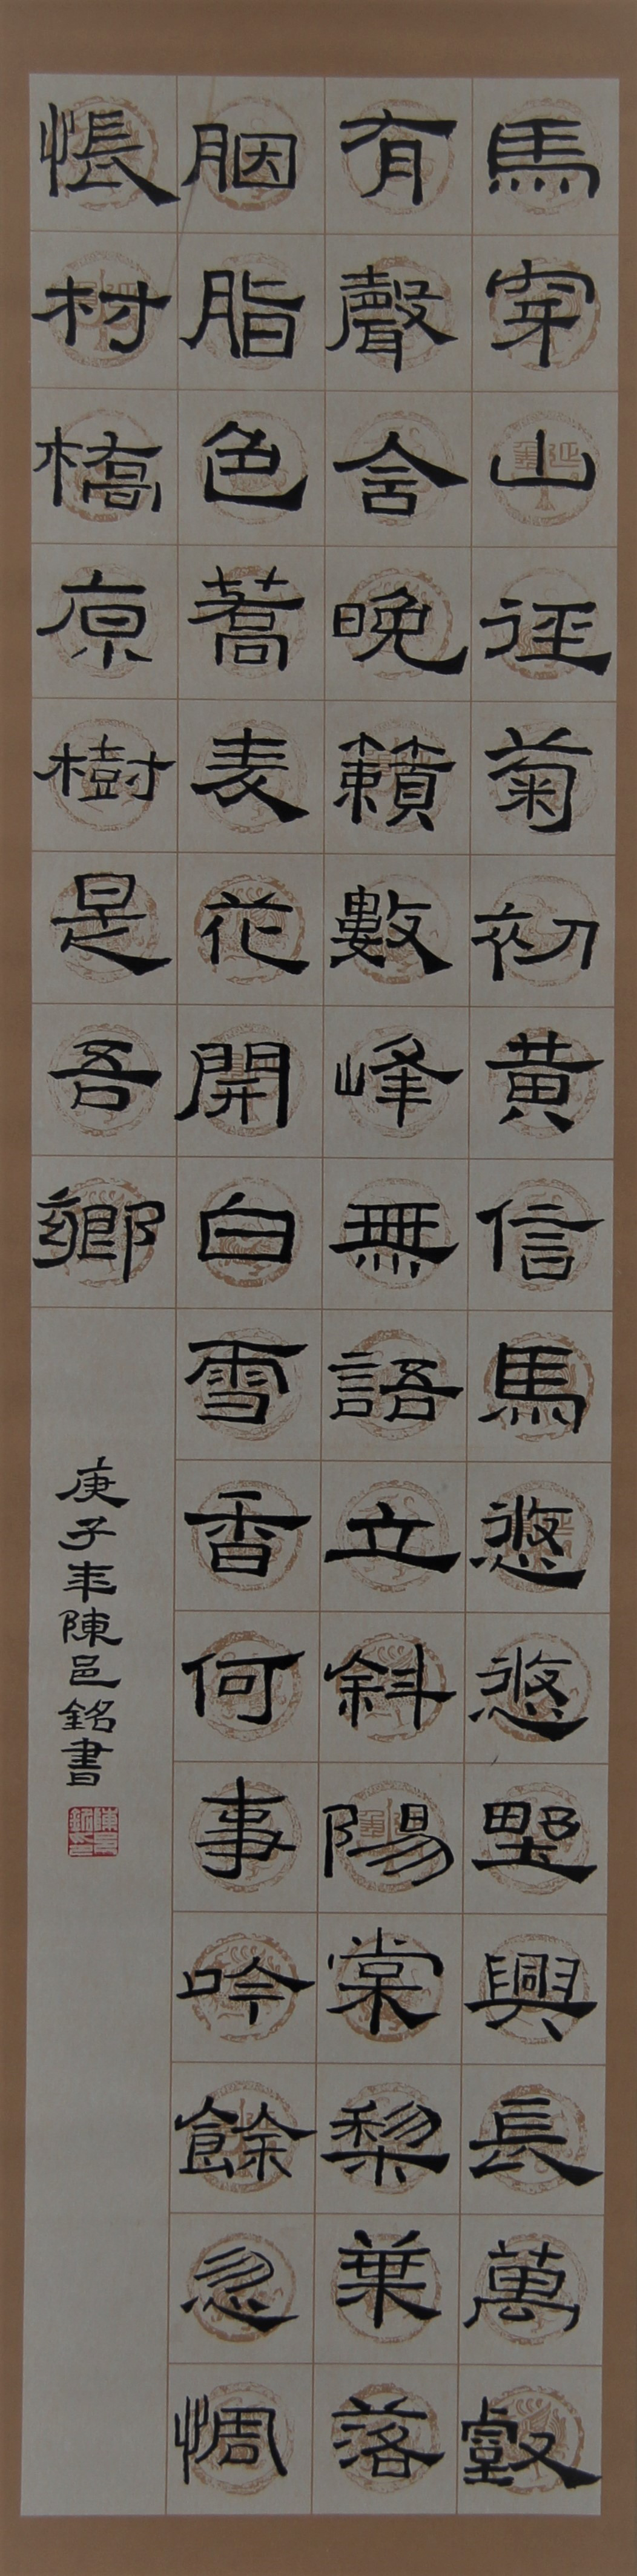 馬穿山徑菊初黃信馬悠悠野興長萬壑
有聲含晚籟數峰無語立斜陽棠梨葉落
胭脂色蕎麥花開白雪香何事吟餘忽惆
悵村橋原樹是吾鄉
庚子年陳邑銘書